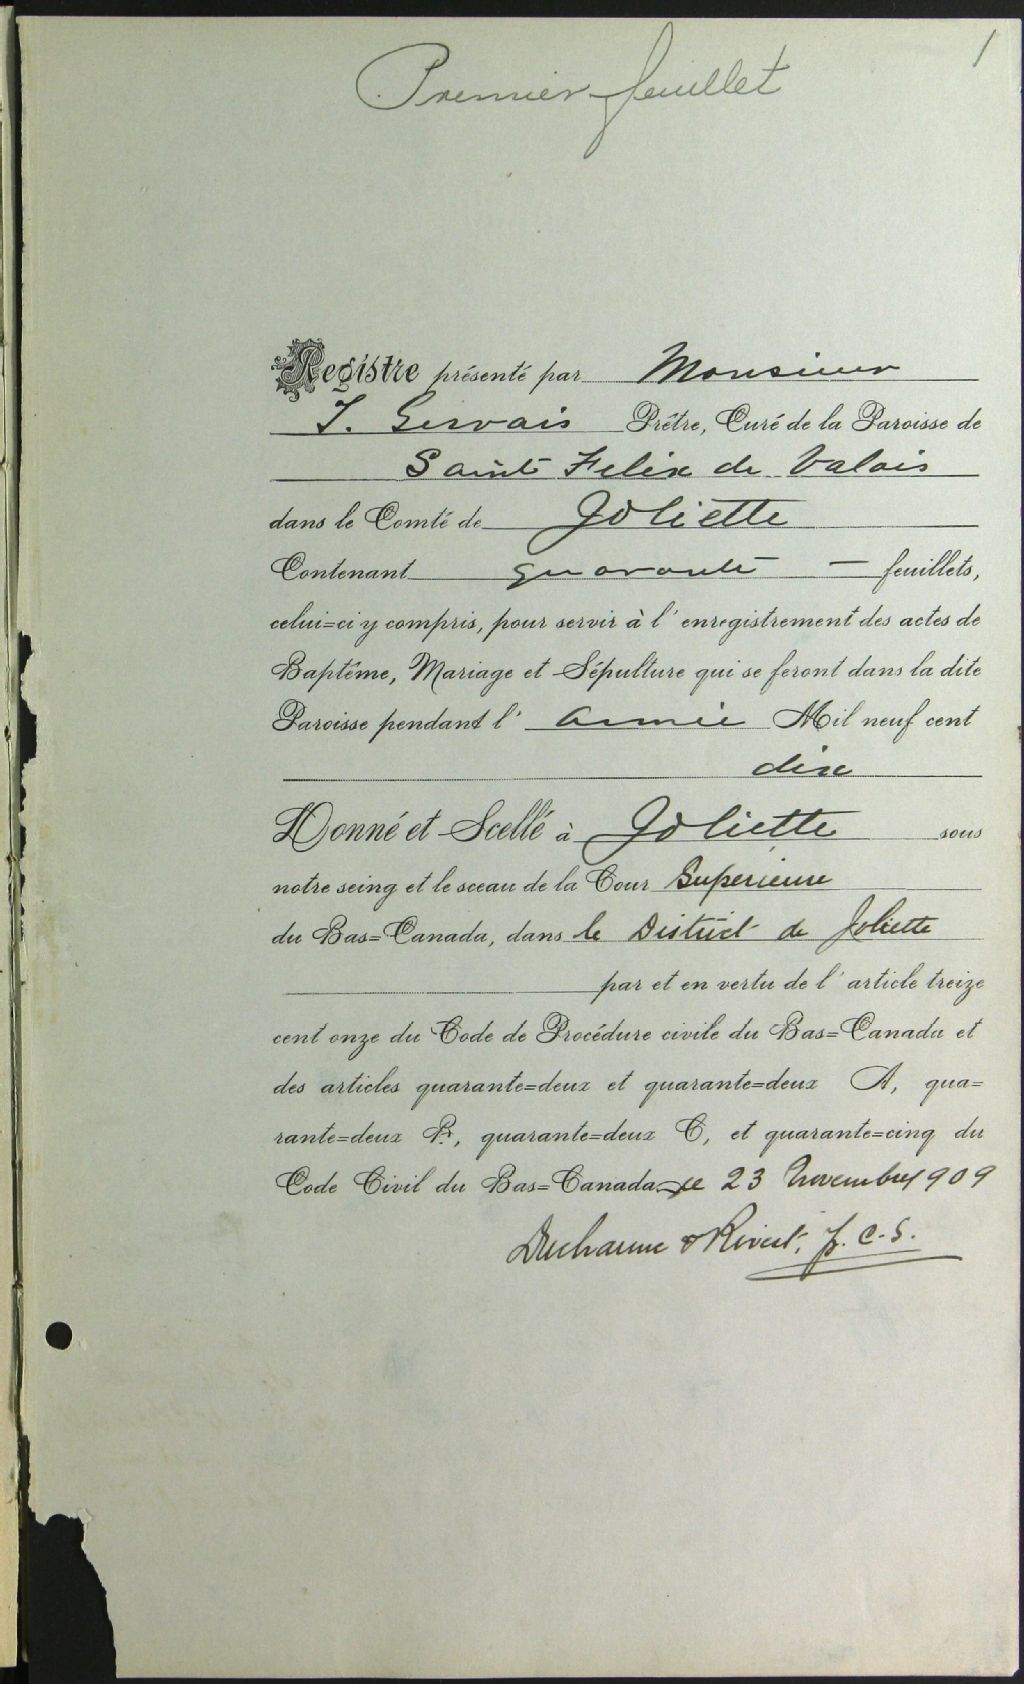 1
Premier feuillet
Registre présenté par Monsieur
J. Gervais Prêtre, Curé de la Paroisse de
Saint Felix de Valois
dans le Comté de Joliette
Contenant quarante — feuillets,
celui=ci y compris, pour servir à l'enregistrement des actes de
Baptême, Mariage et Sépulture qui se feront dans la dite
Paroisse pendant l' année Mil neuf cent
dix
Donné et Scellé à Joliette sous
notre seing et le sceau de la Cour Superieure
du Bas=Canada, dans le District de Joliette
par et en vertu de l'article treize
cent onze du Code de Procédure civile du Bas=Canada et
des articles quarante=deux et quarante=deux A, qua=
rante=deux B, quarante=deux C, et quarante=cinq du
Code Civil du Bas=Canada ce 23 Novembre 1909
Ducharme & Rivest, P.C.S.